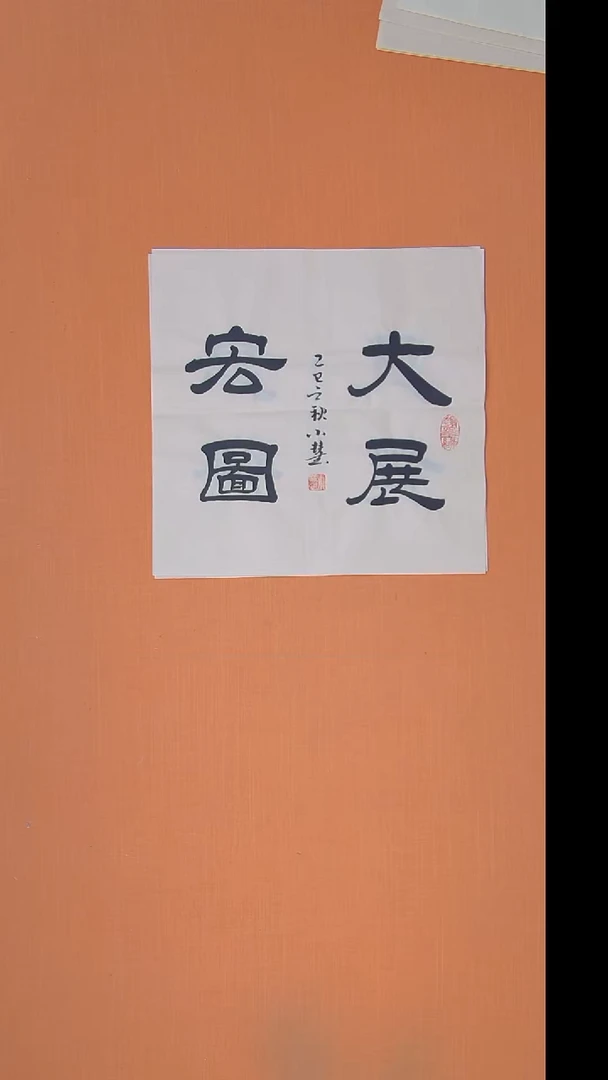 大展
宏圖
乙巳之秋小慧